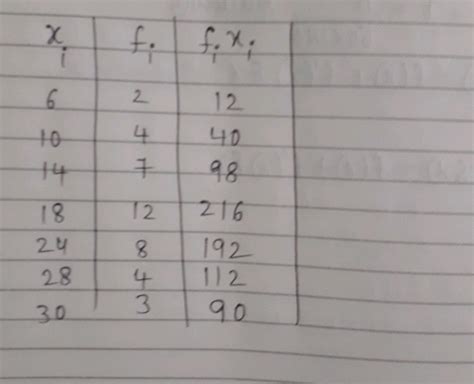 xi fi fixi
6 2 12
10 4 40
14 7 98
18 12 216
24 8 192
28 4 112
30 3 90